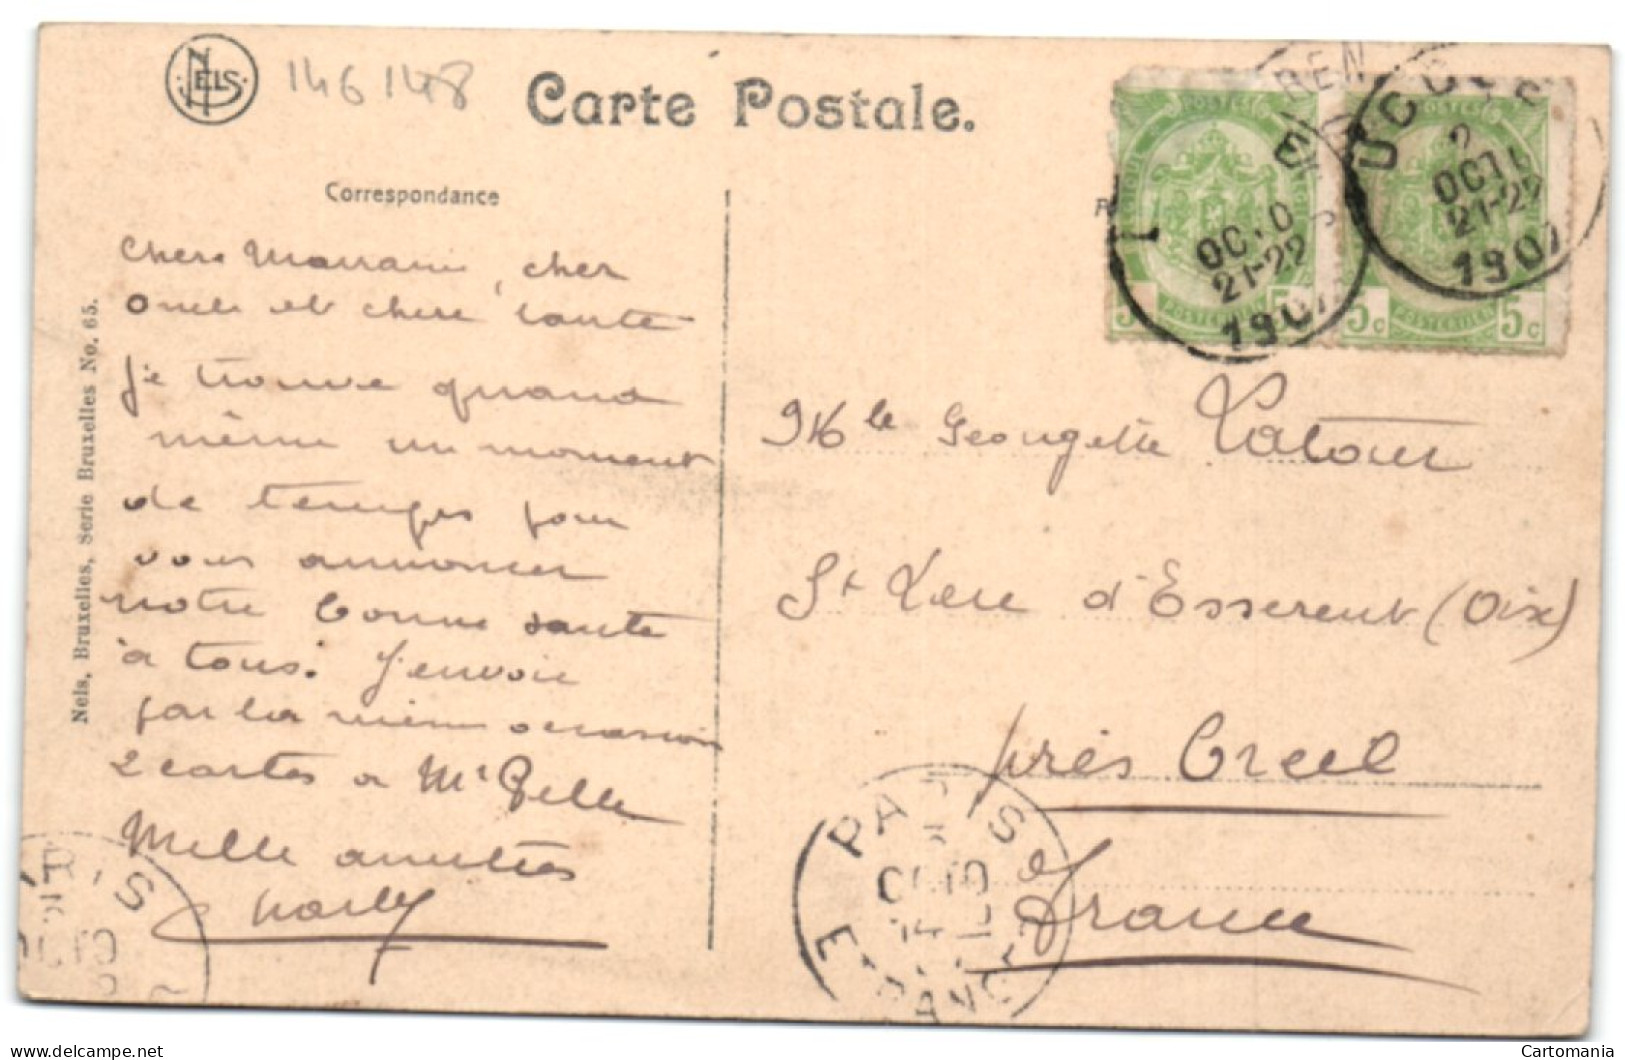 NELS
146 148
Carte Postale.
Correspondance
Nels, Bruxelles, Serie Bruxelles No. 65.
Chère Marraine, cher
Oncle et chère tante
Je trouve quand
même un moment
de temps pour
vous annoncer
notre bonne santé
à tous. J'envoie
par la même occasion
2 cartes a Mr Pelle
Mille amitiés
Charley
POSTES
5c POSTERIJEN 5c
UCCLE
2
OCT
21-22
1907
OCT
21-22
1907
Mlle Georgette Latour
St Leu d'Esserent (Oix)
près Creil
France
PARIS
ETRANGER
delcampe.net
Cartomania